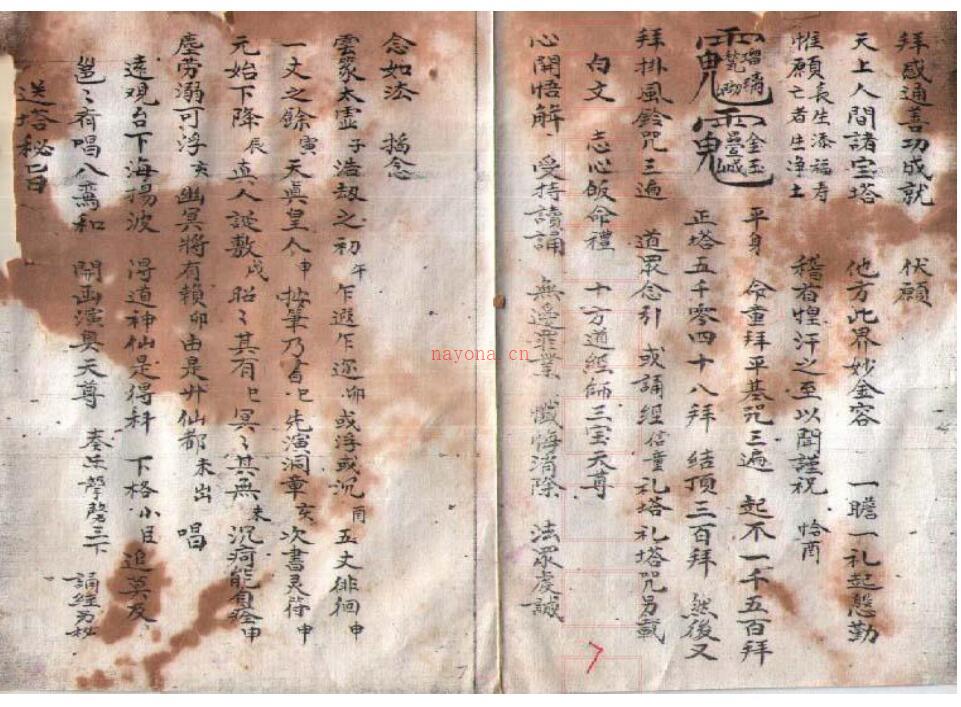 拜感通善功成就　伏願
天上人間諸宝塔　他方此界妙金容　一瞻一礼起慇勤
惟願長生添福寿亡者生浄土　稽首惶汗之至以聞謹祝　恰啇
平身　命重拜平基咒三遍　起不一千五百拜
正塔五千零四十八拜　結頂三百拜　然後又
拜掛風鈴咒三遍　道眾念引　或誦經信童礼塔礼塔咒另載
白文　志心皈命禮　十方道經師三宝天尊
心開悟解　受持讀誦　無邊罪業　懺悔消除　法眾虔誠
念如法　搞念
雲篆太虛子浩劫之初午乍遐乍邇卯或浮或沉酉五丈徘徊申
一丈之餘寅天真皇人申按筆乃書巳先演洞章亥次書灵符申
元始下降辰真人誕敷戌昭〻其有巳冥〻其無未沉疴能自痊申
塵劳溺可浮亥幽冥將有賴卯由是升仙都未出　唱
遠观台下海揚波　得道神仙是得科　下格小臣追莫及
邕〻齊唱八鸞和　開函演奥天尊　奏樂擊磬三下　誦經另秘
送塔秘旨
7
nayona.cn